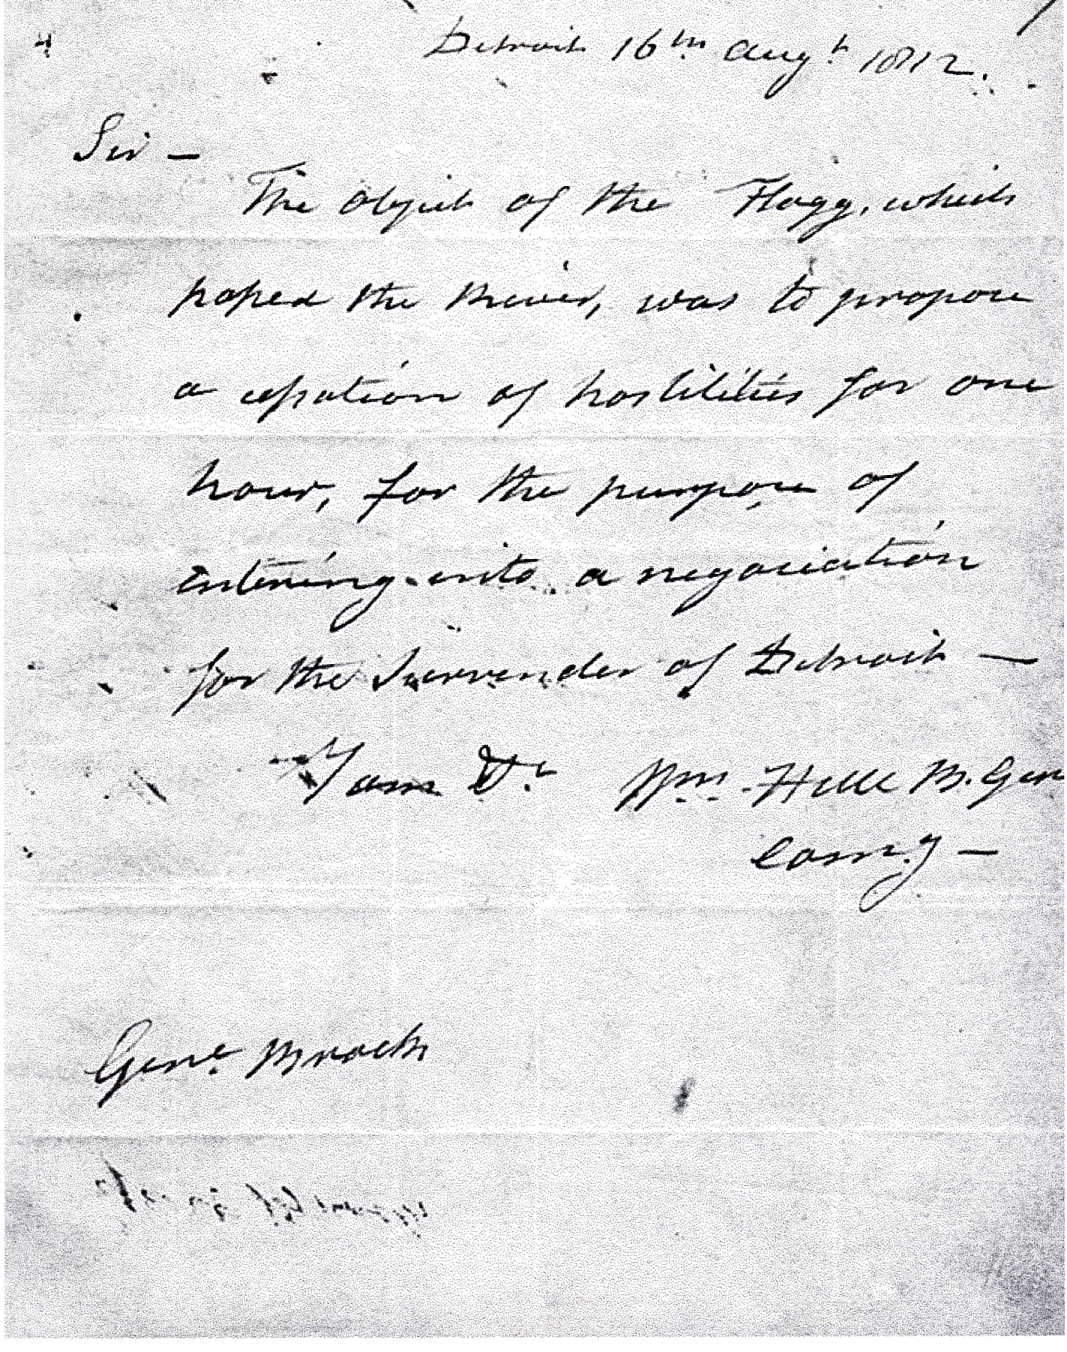 Detroit 16th Augt 1812.
Sir —
The Object of the Flagg, which
passed the River, was to propose
a cessation of hostilities for one
hour, for the purpose of
entering into a negociation
for the Surrender of Detroit —
I am &c. Wm. Hull B. Gen
Comg —
Genl. Brock